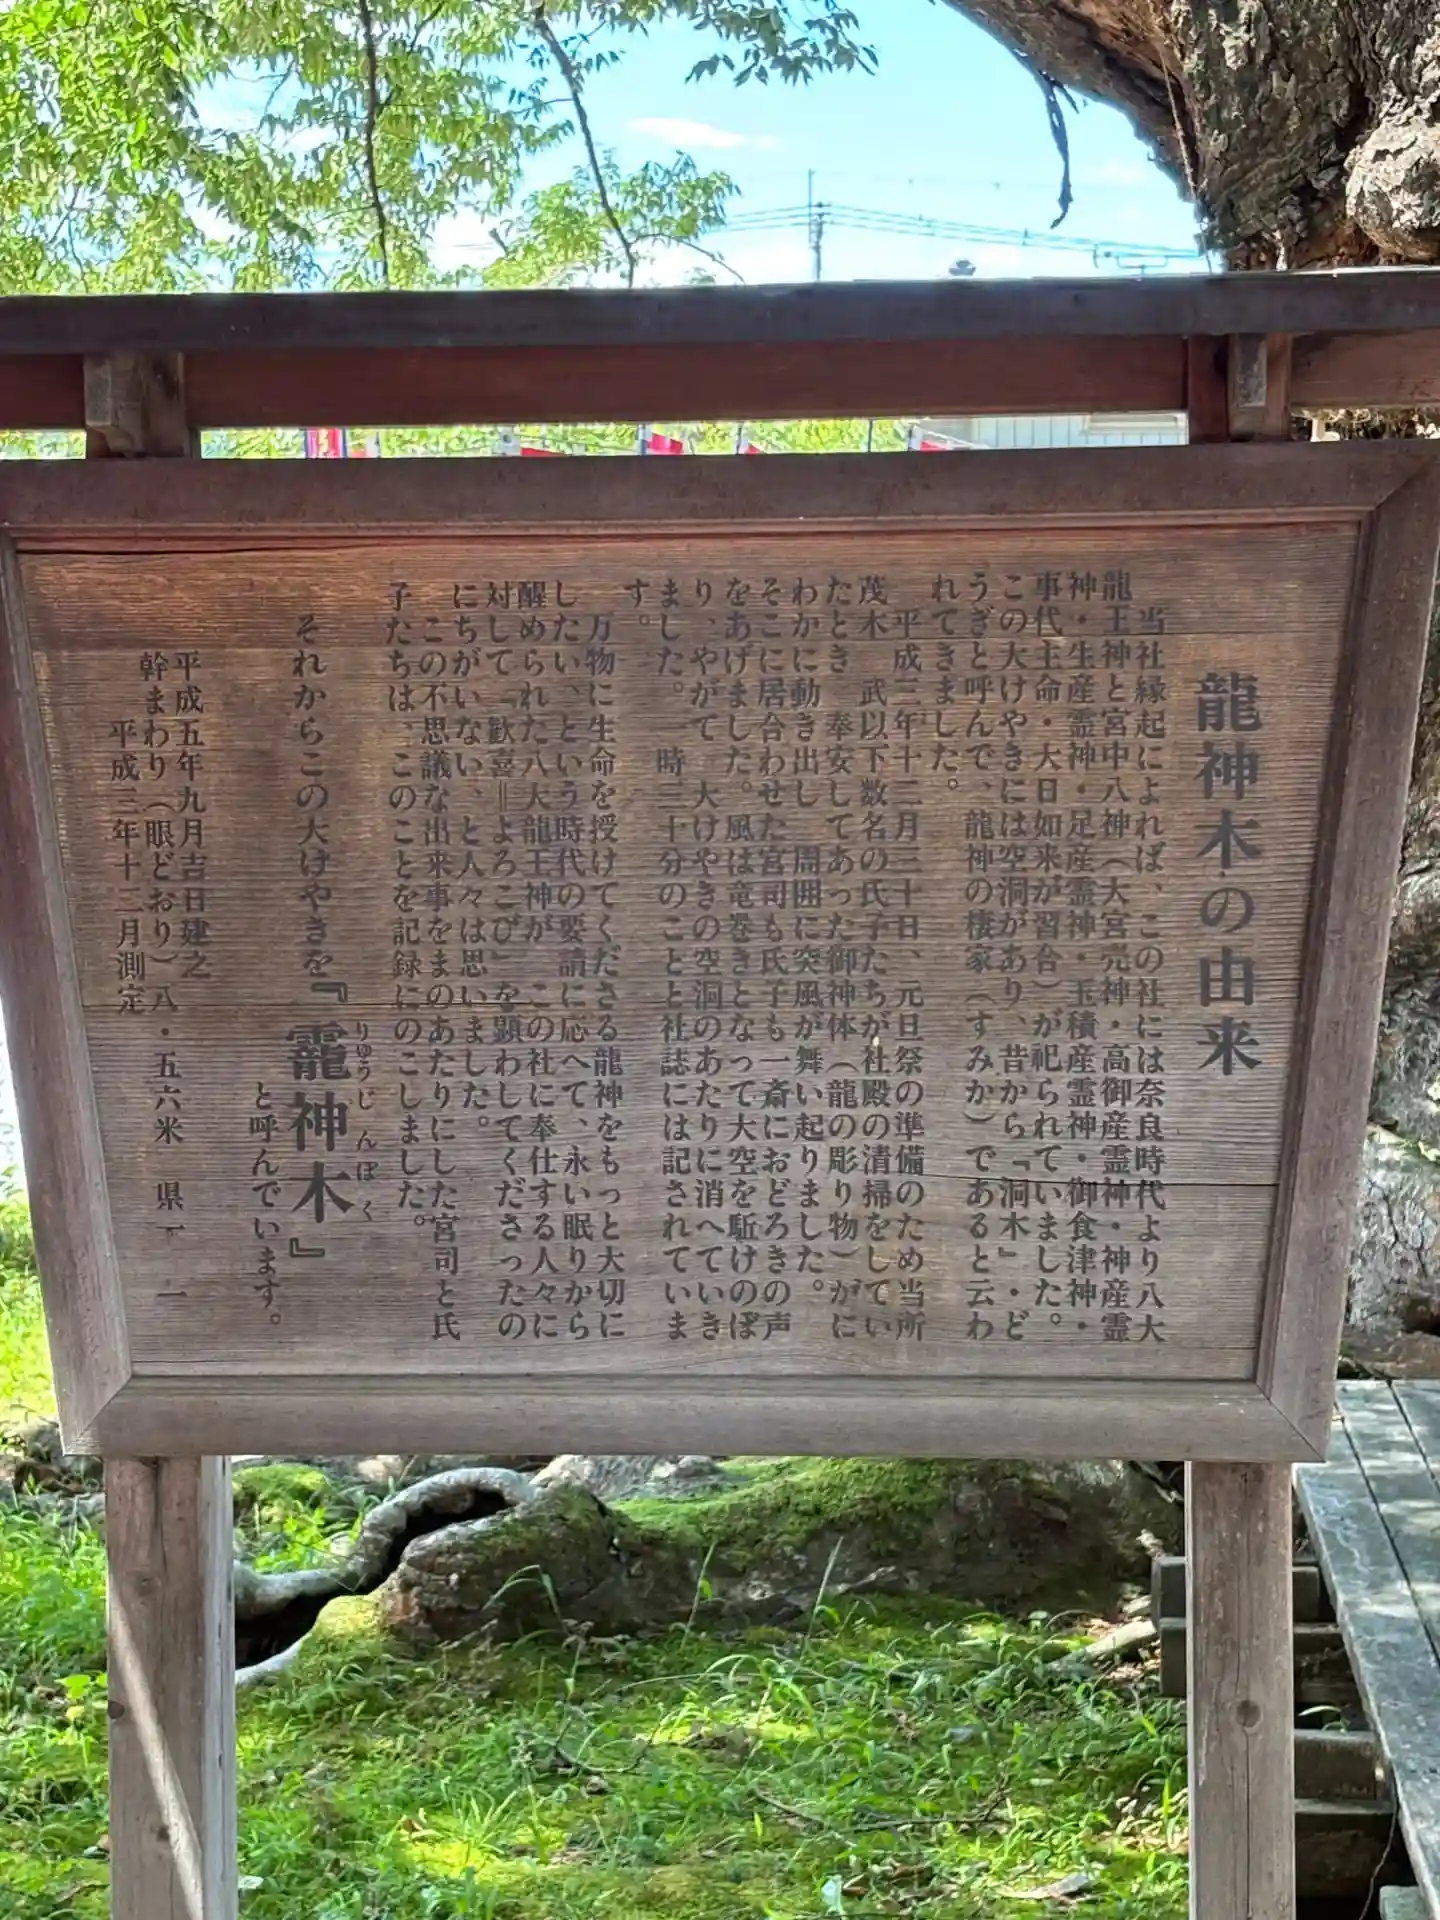 龍神木の由来
当社縁起によれば、この社には奈良時代より八大
龍王神と宮中八神（大宮売神・高御産霊神・神産霊
神・生産霊神・足産霊神・玉積産霊神・御食津神・
事代主命・大日如来が習合）が祀られていました。
この大けやきには空洞があり、昔から「洞木』・ど
うぎと呼んで、龍神の棲家（すみか）であると云わ
れてきました。
平成三年十二月三十日、元旦祭の準備のため当所
茂木 武以下数名の氏子たちが社殿の清掃をしてい
たとき 奉安してあった御神体（龍の彫り物）がに
わかに動き出し 周囲に突風が舞い起りました。
そこに居合わせた宮司も氏子も一斎におどろきの声
をあげました。風は竜巻きとなって大空を駈けのぼ
り、やがて 大けやきの空洞のあたりに消へていき
ました。一時三十分のことと社誌には記されていま
す。
万物に生命を授けてくださる龍神をもっと大切に
したい、という時代の要請に応へて、永い眠りから
醒められた八大龍王神が この社に奉仕する人々に
対して「歓喜＝よろこび」を顕わしてくださったの
にちがいない、と人々は思いました。
この不思議な出来事をまのあたりにした宮司と氏
子たちは、このことを記録にのこしました。
それからこの大けやきを『龗神木』
りゅうじんぼく
と呼んでいます。
平成五年九月吉日建之
幹まわり（眼どおり）八・五六米 県下 一
平成三年十二月測定